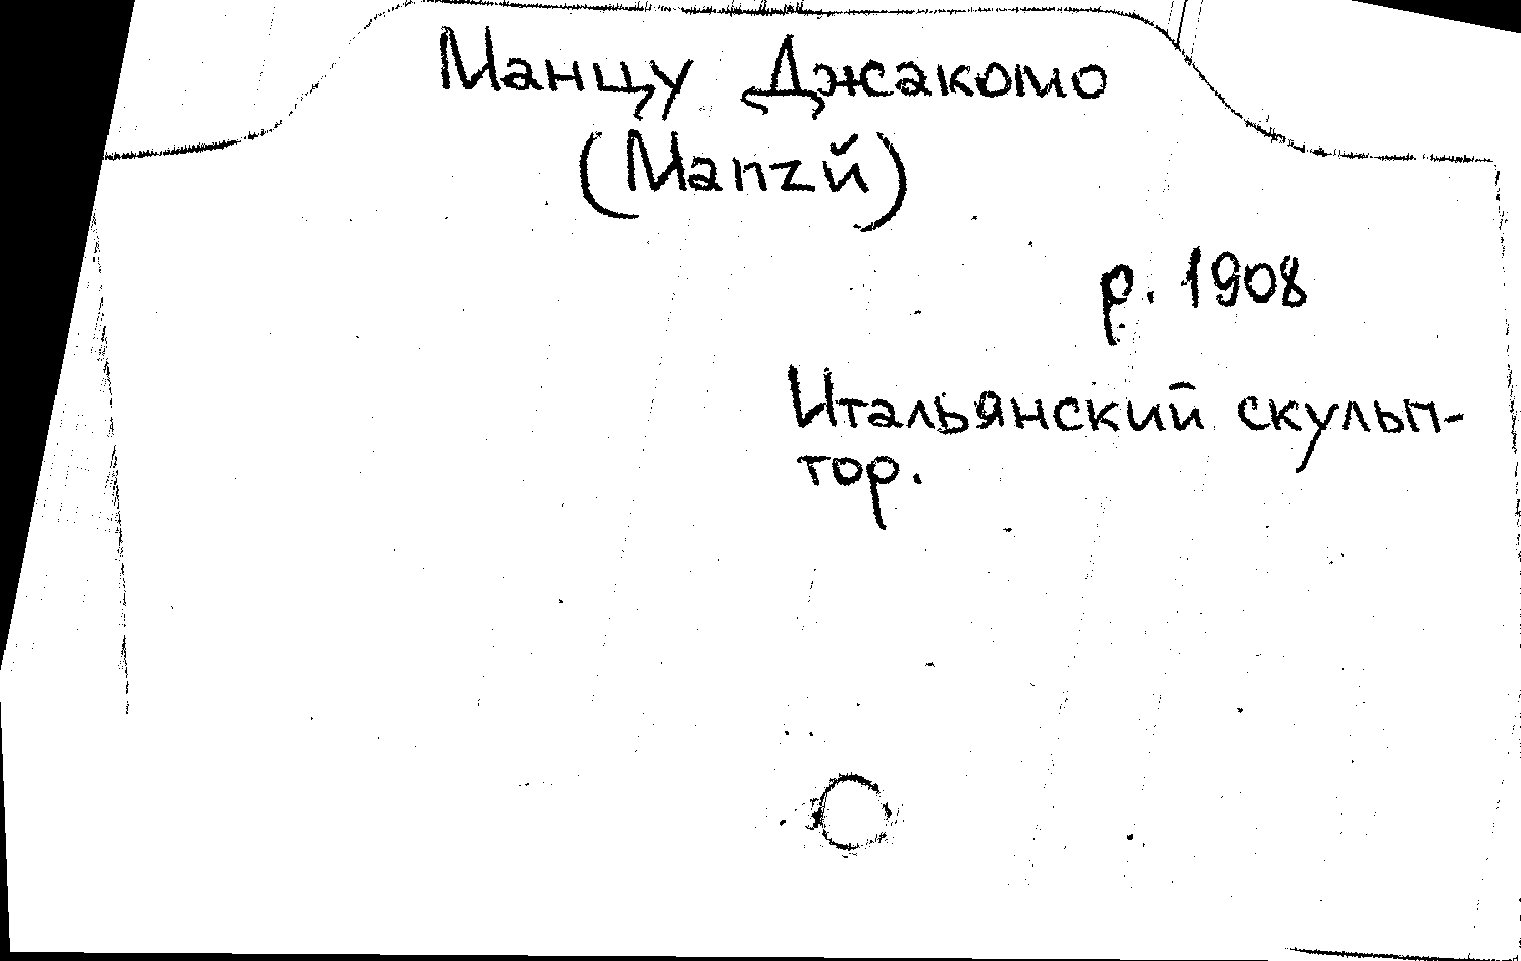 Манцу Джакомо
(Manzŭ)
р. 1908
Итальянский скульп-
тор.